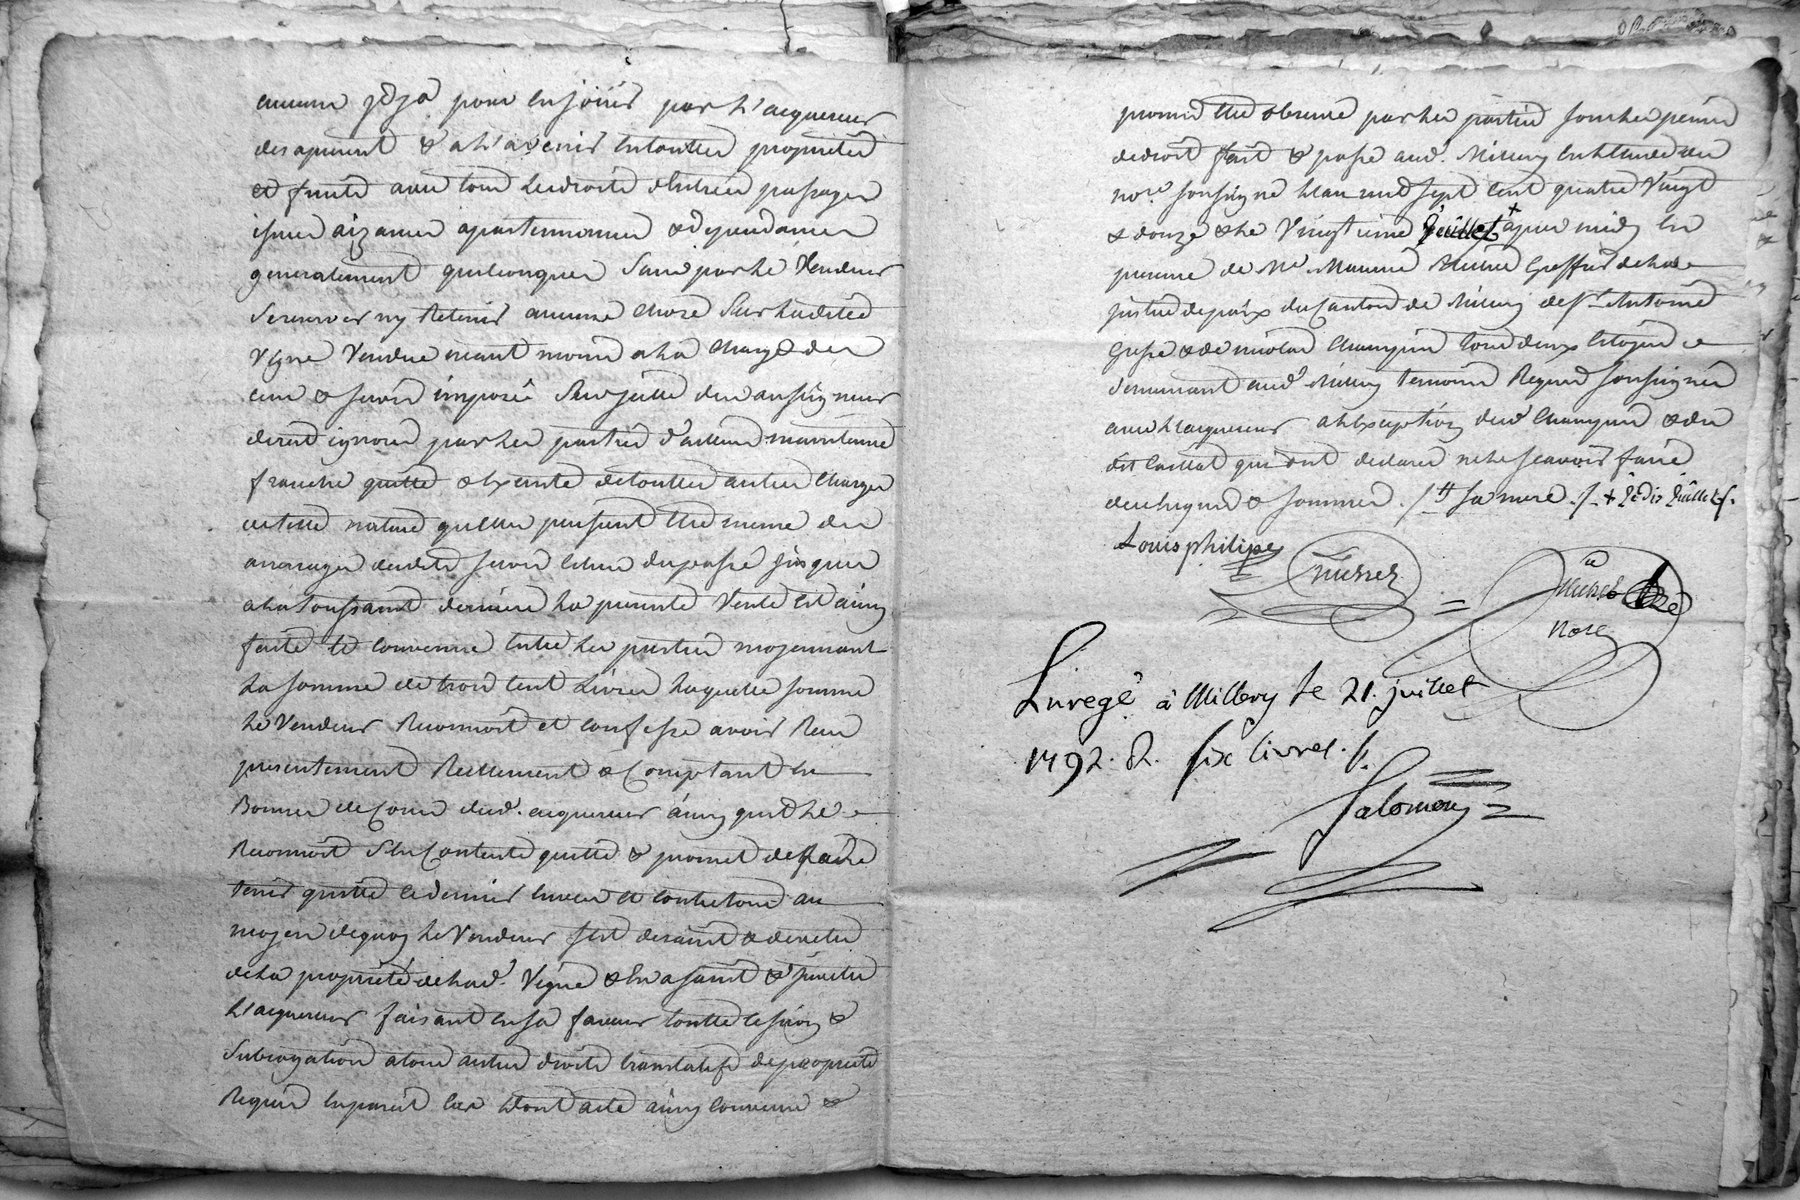 pour en jouir par l'acquereur
des apresent & a l'avenir en touttes proprietes
et fruits avec tous les droits d'entrées passages
issues aizances apartenances & dependances
generalement quelconques sans par le vendeur
se reserver ny retenir aucune chose sur laditte
vigne vendue neant moins a la charge des
cens & servis imposés sur jcelle du au seigneur
direct ignoré par les parties d'ailleurs maintenue
franche quitte & exempte de touttes autres charges
de telle nature quelles puissent etre meme des
arrerages desdits servis echus du passé jusques
a la toussaint derniere la presente vente est ainsy
faitte et convenue entre les parties moyennant
la somme de trois cent livres laquelle somme
le vendeur reconnoit et confesse avoir reçu
presentement reellement & comptant en
bonnes de cours dud. acquereur ainsy quil le
reconnoit s'en contente quitte & promet de faire
tenir quitte ce dernier envers et contre tous au
moyen de quoy le vendeur s'est desaisit & devetu
de la propriété de lad. vigne & en a saisit & jnvetu
l'acquereur faisant en sa faveur toutte cession &
subrogation a tous autres droits translatifs de propriété
requis en pareil cas dont acte ainsy convenu &
promis etre observé par les parties sous les peines
de droit fait & passé aud. Millery en l'etude du
nore. soussigné l'an mil sept cent quatre vingt
& douze & le vingtieme juillet + apres midy en
presence de Me. Greffier de la
justice de paix du Canton de Millery de Sr. Antoine
& de nicolas Champin tous deux citoyens
demeurant aud. Millery temoins requis soussignés
avec l'acquereur a l'exception dud. Champin & du
dit qui ont declaré ne le scavoir faire
de ce enquis & sommés. sa mere ./. + je dis juillet ./.
Louis philipe
Nore
Enregé à Millery le 21. juillet
1792. R. six livres ./.
Salomon